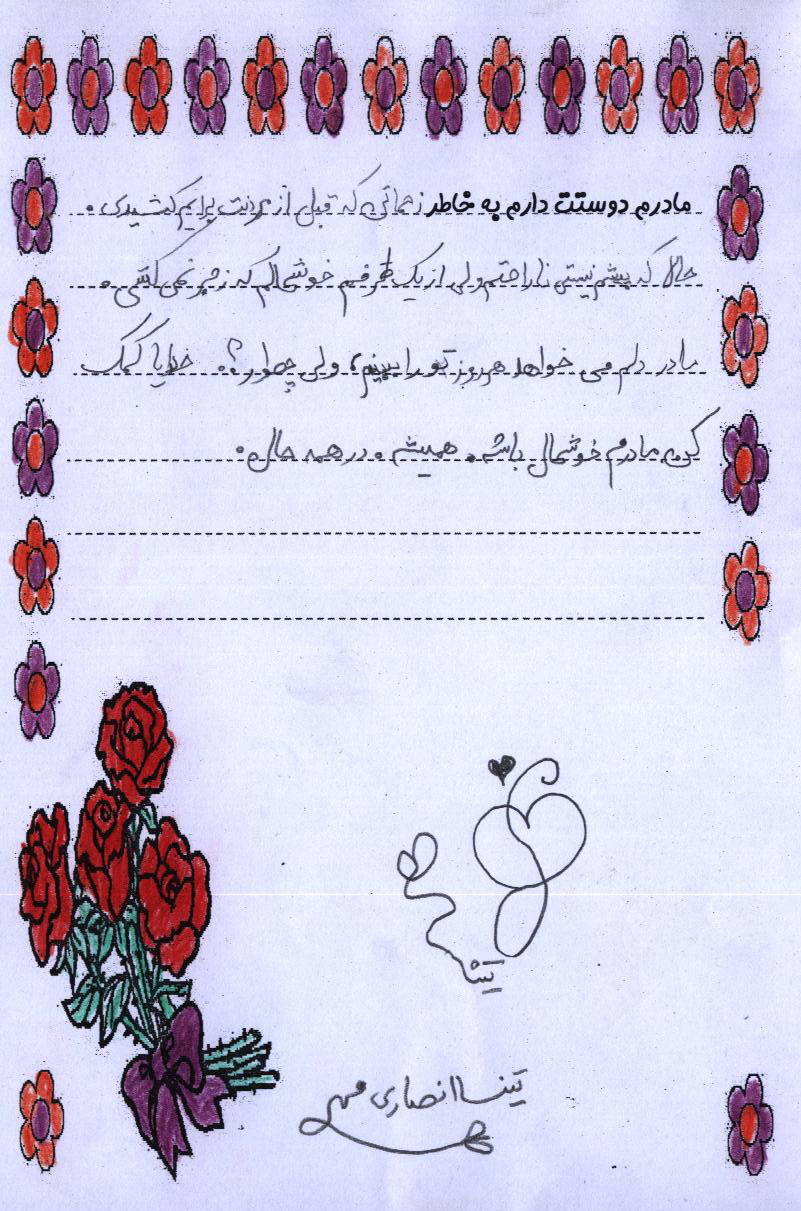 مادرم دوستت دارم به خاطر زحماتی که قبل از مردنت برایم کشیدی .
حالا که پیشم نیستی ناراحتم ولی از یک طرف خوشحالم که زجر نمی کشی .
مادر دلم می خواهد هر روز تو را ببینم، ولی چطور؟. خدایا کمک
کن مادرم خوشحال باشد . همیشه . در همه حال .
تینا
تینسا انصاری مهر